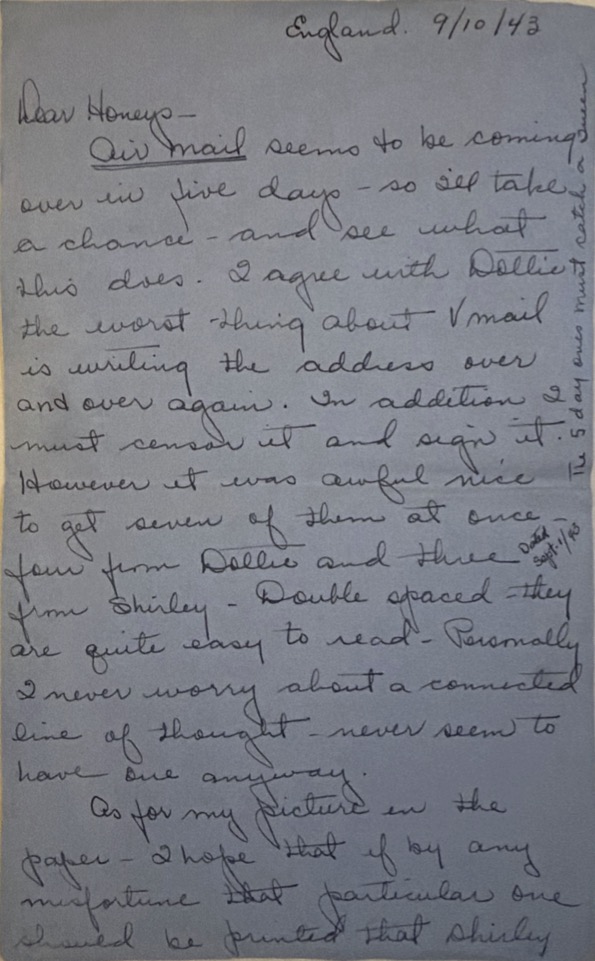 England. 9/10/43
Dear Honeys -
Air Mail seems to be coming
over in five days - so I'll take
a chance - and see what
this does. I agree with Dollie
the worst thing about V mail
is writing the address over
and over again. In addition I
must censor it and sign it.
However it was awful nice
to get seven of them at once -
four from Dollie and three
Dated
Sept. 1/43
from Shirley - Double spaced - they
are quite easy to read - Personally
I never worry about a connected
line of thought - never seem to
have one anyway.
As for my picture in the
paper - I hope that if by any
misfortune that particular one
should be printed that Shirley
The 5 day ones must catch a Queen